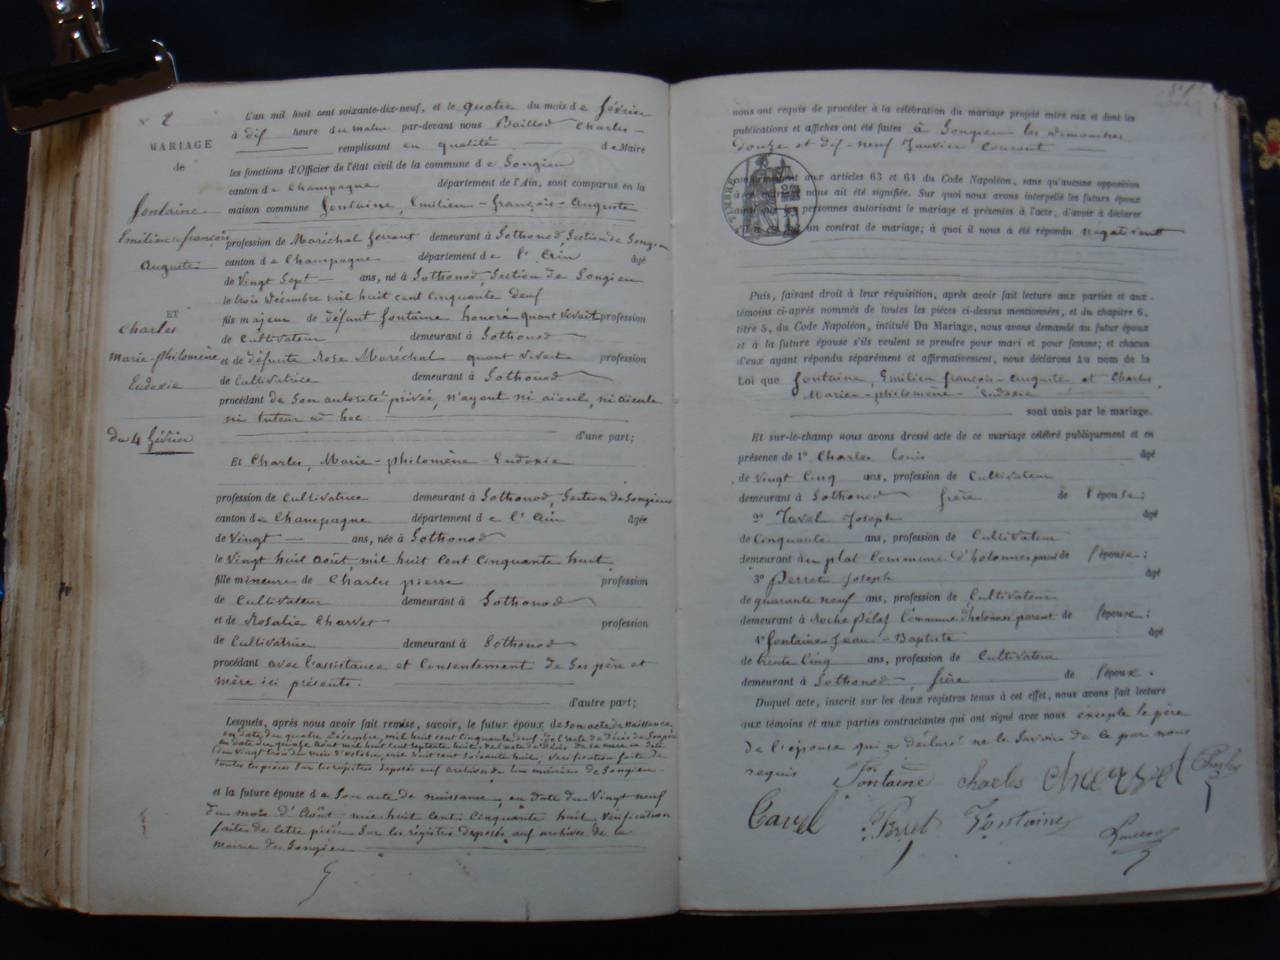 N° 2
MARIAGE
de
fontaine
Emilien-françois
Auguste
ET
Charles
Marie-philomène
Eudoxie
du 4 février
L'an mil huit cent soixante-dix-neuf, et le quatre du mois de février
à dix heure du matin par-devant nous Baillod Charles
remplissant en qualité de Maire
les fonctions d'Officier de l'état civil de la commune de Songieu
canton de Champagne département de l'Ain, sont comparus en la
maison commune fontaine, Emilien-françois-Auguste
profession de Maréchal ferrant demeurant à Sothonod Section de Songieu
canton de Champagne département de l'Ain âgé
de Vingt Sept ans, né à Sothonod, Section de Songieu
le trois Décembre mil huit cent cinquante neuf
fils majeur de défunt fontaine honoré quant vivait profession
de Cultivateur demeurant à Sothonod
et de défunte Rose Maréchal quant vivait profession
de Cultivatrice demeurant à Sothonod
procédant de son autorité privée, n'ayant ni aïeul, ni aïeule
ni tuteur ad hoc
d'une part;
Et Charles, Marie-philomène-Eudoxie
profession de Cultivatrice demeurant à Sothonod, Section de Songieu
canton de Champagne département de l'Ain âgée
de Vingt ans, née à Sothonod
le Vingt huit août mil huit cent cinquante huit
fille mineure de Charles pierre profession
de Cultivateur demeurant à Sothonod
et de Rosalie Charvet profession
de Cultivatrice demeurant à Sothonod
procédant avec l'assistance et consentement de ses père et
mère ici présents.
d'autre part;
Lesquels, après nous avoir fait remise, savoir, le futur époux de son acte de naissance
en date du quatre Décembre, mil huit cent cinquante neuf, de l'acte de décès de son père
en date du quinze août mil huit cent septante huit, de l'acte de décès de sa mère en date
du vingt trois du mois d'octobre, mil huit cent soixante huit, vérification faite de
toutes les pièces sur les registres déposés aux archives de la mairie de Songieu
et la future épouse de son acte de naissance, en date du Vingt neuf
du mois d'Août mil huit cent cinquante huit vérification
faite de cette pièce sur les régistres déposés aux archives de la
mairie de Songieu
nous ont requis de procéder à la célébration du mariage projeté entre eux et dont les
publications et affiches ont été faites à Songieu les dimanches
douze et dix-neuf Janvier Courant
conformément aux articles 63 et 64 du Code Napoléon, sans qu'aucune opposition
nous ait été signifiée. Sur quoi nous avons interpellé les futurs époux
personnes autorisant le mariage et présentes à l'acte, d'avoir à déclarer
un contrat de mariage; à quoi il nous a été répondu négativement
TIMBRE
Puis, faisant droit à leur réquisition, après avoir fait lecture aux parties et aux
témoins ci-après nommés de toutes les pièces ci-dessus mentionnées, et du chapitre 6,
titre 5, du Code Napoléon, intitulé Du Mariage, nous avons demandé au futur époux
et à la future épouse s'ils veulent se prendre pour mari et pour femme; et chacun
d'eux ayant répondu séparément et affirmativement, nous déclarons au nom de la
Loi que fontaine, Emilien françois-auguste et Charles,
Marie-philomène Eudoxie
sont unis par le mariage.
Et sur-le-champ nous avons dressé acte de ce mariage célébré publiquement et en
présence de 1° Charles Louis âgé
de Vingt Cinq ans, profession de Cultivateur
demeurant à Sothonod frère de l'épouse;
2° Tavel Joseph âgé
de Cinquante ans, profession de Cultivateur
demeurant à un plat Commune d'hotonnes parent de l'épouse;
3° Perret Joseph âgé
de quarante neuf ans, profession de Cultivateur
demeurant à Commune d'hotonnes parent de l'épouse;
4° fontaine Jean-Baptiste âgé
de trente Cinq ans, profession de Cultivateur
demeurant à Sothonod frère de l'époux.
Duquel acte, inscrit sur les deux registres tenus à cet effet, nous avons fait lecture
aux témoins et aux parties contractantes qui ont signé avec nous excepté le père
de l'épouse qui a déclaré ne le savoir de ce par nous
requis
Fontaine Charles Charvet Charles
Tavel Perret Fontaine